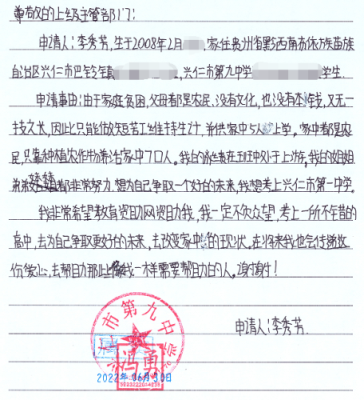 尊敬的上级主管部门:
申请人:李秀芳,生于2008年2月 家住贵州省黔西南布依族苗族
自治区兴仁市巴铃镇 ,兴仁市第九中学 学生.
申请事由:由于家庭贫困,父母都是农民,没有文化,也没有本钱,又无一
技之长,因此只能做短苦工维持生计,并供家中5人上学。家中都是农
民,只靠种植农作物养活家中70人。我的成绩在班中处于上游,我的姐姐
弟弟 都非常努力,想为自己争取一个好的未来,我想考上兴仁市第一中学。
我非常希望教育资助网资助我,我一定不负众望,考上一所不错的
高中,去为自己争取更好的未来,去改变家中的现状。在将来我也会付诸
心,去帮助那些像我一样需要帮助的人。谢谢!
申请人:李秀芳.
市第九中学
冯勇
2022年06月30日